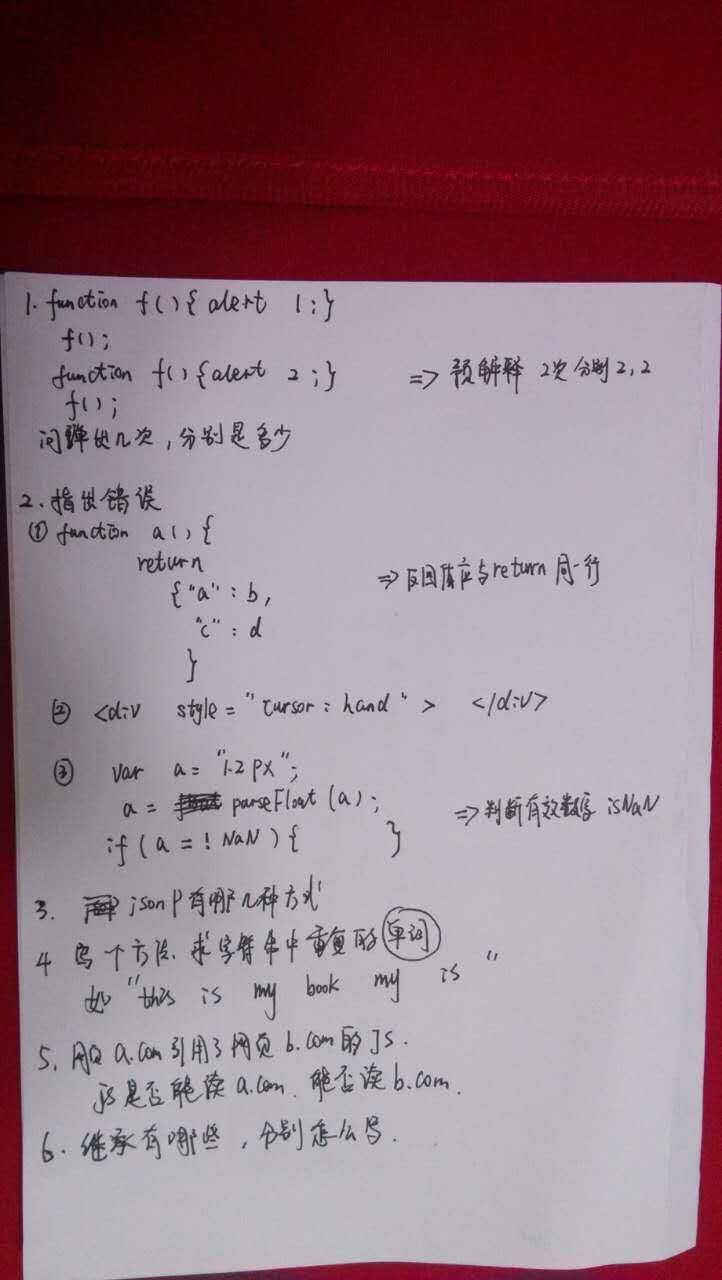 1. function f(){ alert 1;}
f();
function f(){alert 2;} => 预解释 2次 分别2,2
f();
问弹出几次,分别是多少
2. 指出错误
① function a(){
return => 返回值应与return 同一行
{"a" : b,
"c" : d
}
② <div style="cursor: hand"> </div>
③ var a = "1.2px";
a = parseFloat(a); => 判断有效数字 isNaN
if(a =! NaN){ }
3. jsonp有哪几种方式
4 写个方法,求字符串中重复的单词
如 "this is my book my is"
5. 网页 a.com引用了网页 b.com的JS.
JS是否能读a.com、能否读b.com.
6. 继承有哪些,分别怎么写.